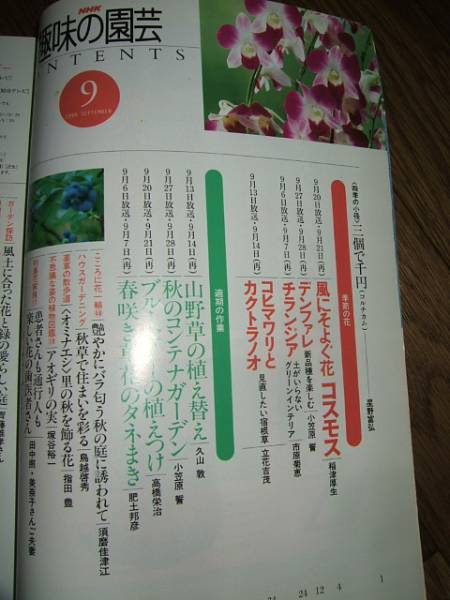 NHK
趣味の園芸
CONTENTS
9
1998 SEPTEMBER
〈四季の小径〉三個で千円(コルチカム) 星野富弘
季節の花
9月20日放送・9月21日(再) 風にそよぐ花 コスモス 稲津厚生
9月27日放送・9月28日(再) デンファレ 新品種を楽しむ 小笠原 誓
9月6日放送・9月7日(再) チランジア 土がいらないグリーンインテリア 市原菊恵
9月13日放送・9月14日(再) コヒマワリとカクトラノオ 見直したい宿根草 立花吉茂
適期の作業
9月13日放送・9月14日(再) 山野草の植え替え 久山 敦
9月27日放送・9月28日(再) 秋のコンテナガーデン 小笠原 誓
9月20日放送・9月21日(再) ブルーベリーの植えつけ 高橋栄治
9月6日放送・9月7日(再) 春咲き草花のタネまき 肥土邦彦
こころに花一輪 艶やかにバラ匂う秋の庭に誘われて 須磨佳津江
ハウスガーデニング 秋草で住まいを彩る 鳥越啓秀
薬草の散歩道 〈オミナエシ〉里の秋を飾る花 指田 豊
不思議な姿の植物図鑑 アオギリの実 塚谷裕一
患者さんも通行人も
楽しい花の歯医者さん 田中樹・美奈子さんご夫妻
ガーデン探訪
風土に合った花と緑の愛らしい庭
24
24
12
4
1